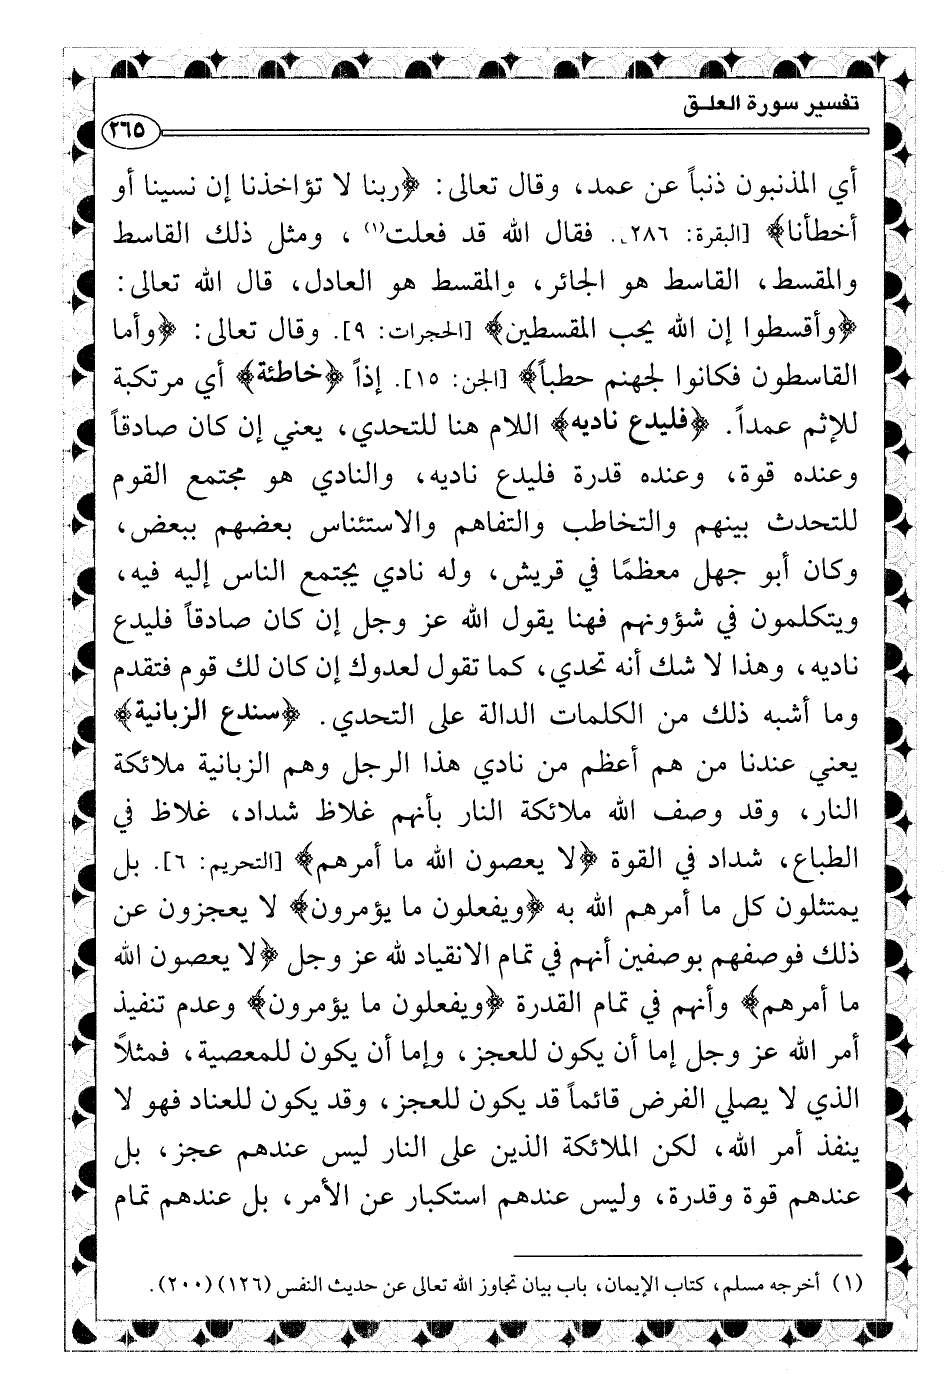 تفسير سورة العلـق
٢٦٥
أي المذنبون ذنباً عن عمد، وقال تعالى: ﴿ربنا لا تؤاخذنا إن نسينا أو
أخطأنا﴾ [البقرة: ٢٨٦]. فقال الله قد فعلت(١)، ومثل ذلك القاسط
والمقسط، القاسط هو الجائر، والمقسط هو العادل، قال الله تعالى:
﴿وأقسطوا إن الله يحب المقسطين﴾ [الحجرات: ٩]. وقال تعالى: ﴿وأما
القاسطون فكانوا لجهنم حطباً﴾ [الجن: ١٥]. إذاً ﴿خاطئة﴾ أي مرتكبة
للإثم عمداً. ﴿فليدع ناديه﴾ اللام هنا للتحدي، يعني إن كان صادقاً
وعنده قوة، وعنده قدرة فليدع ناديه، والنادي هو مجتمع القوم
للتحدث بينهم والتخاطب والتفاهم والاستئناس بعضهم ببعض،
وكان أبو جهل معظمًا في قريش، وله نادي يجتمع الناس إليه فيه،
ويتكلمون في شؤونهم فهنا يقول الله عز وجل إن كان صادقاً فليدع
ناديه، وهذا لا شك أنه تحدي، كما تقول لعدوك إن كان لك قوم فتقدم
وما أشبه ذلك من الكلمات الدالة على التحدي. ﴿سندع الزبانية﴾
يعني عندنا من هم أعظم من نادي هذا الرجل وهم الزبانية ملائكة
النار، وقد وصف الله ملائكة النار بأنهم غلاظ شداد، غلاظ في
الطباع، شداد في القوة ﴿لا يعصون الله ما أمرهم﴾ [التحريم: ٦]. بل
يمتثلون كل ما أمرهم الله به ﴿ويفعلون ما يؤمرون﴾ لا يعجزون عن
ذلك فوصفهم بوصفين أنهم في تمام الانقياد لله عز وجل ﴿لا يعصون الله
ما أمرهم﴾ وأنهم في تمام القدرة ﴿ويفعلون ما يؤمرون﴾ وعدم تنفيذ
أمر الله عز وجل إما أن يكون للعجز، وإما أن يكون للمعصية، فمثلاً
الذي لا يصلي الفرض قائماً قد يكون للعجز، وقد يكون للعناد فهو لا
ينفذ أمر الله، لكن الملائكة الذين على النار ليس عندهم عجز، بل
عندهم قوة وقدرة، وليس عندهم استكبار عن الأمر، بل عندهم تمام
(١) أخرجه مسلم، كتاب الإيمان، باب بيان تجاوز الله تعالى عن حديث النفس (١٢٦) (٢٠٠).